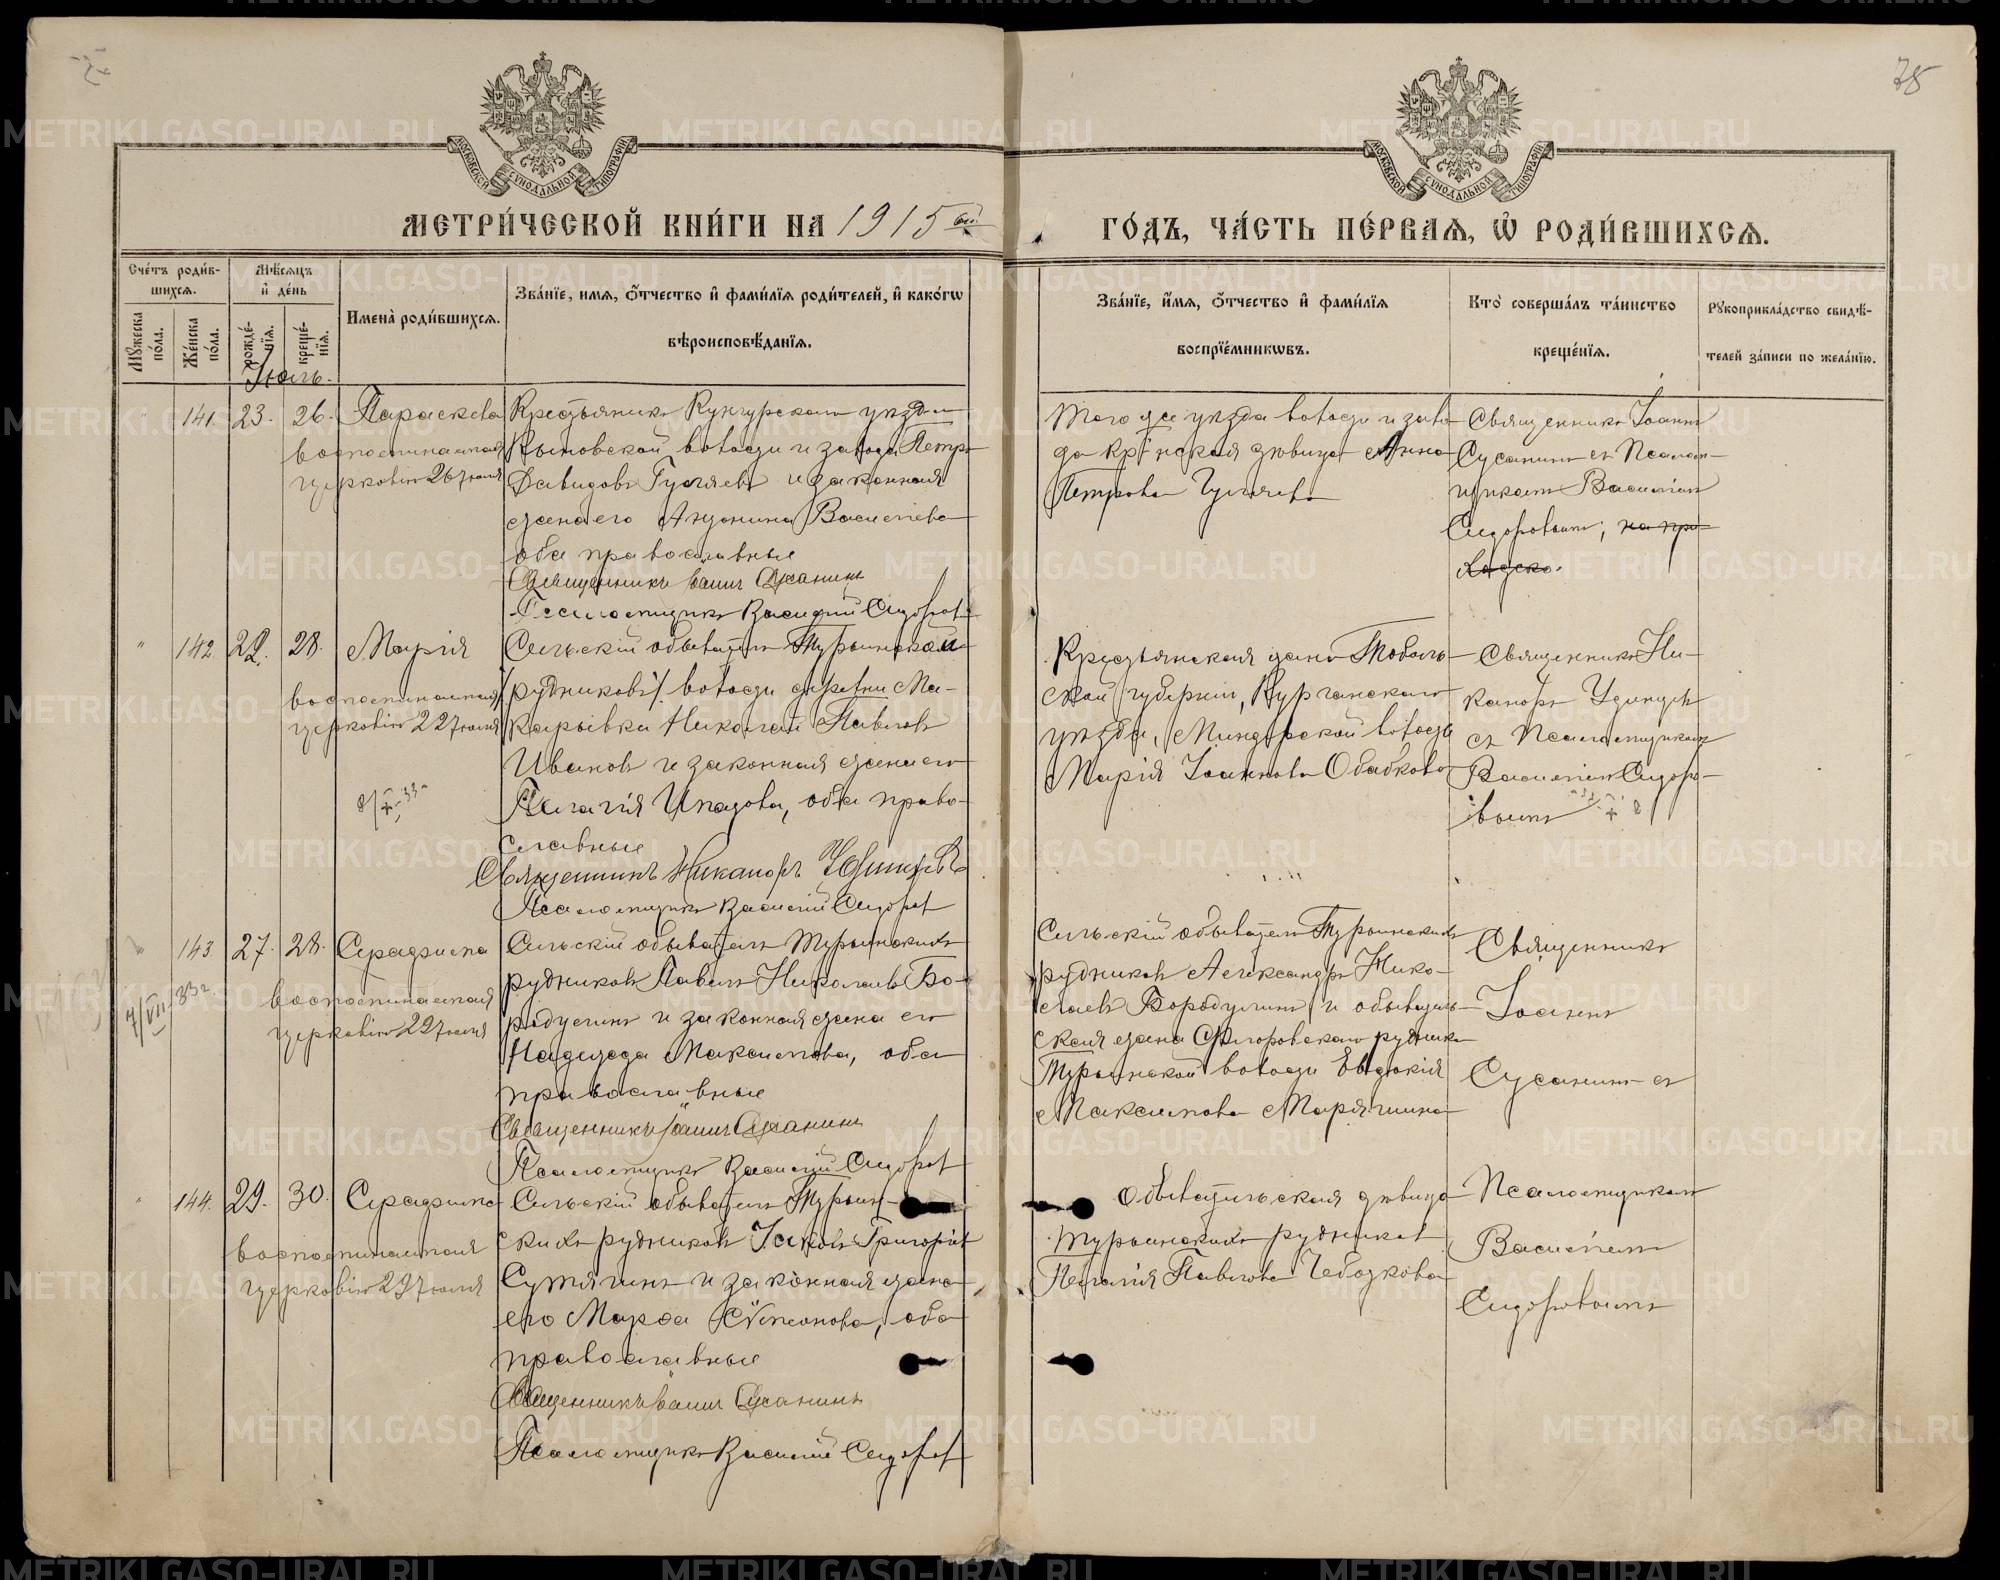 78
МОСКОВСКОЙ СУНОДАЛЬНОЙ ТИПОГРАФІИ
МОСКОВСКОЙ СУНОДАЛЬНОЙ ТИПОГРАФІИ
МЕТРИ́ЧЕСКОЙ КНИ́ГИ НА 1915 ый
ГО́ДЪ, ЧА́СТЬ ПЕ́РВАѦ, Ѽ РОДИ́ВШИХСѦ.
Сче́тъ роди́в-
шихсѧ.
Мѣ́сѧцъ
и҆ де́нь
Мꙋ́жеска
по́ла.
Же́нска
по́ла.
рожде́-
нїѧ.
креще́-
нїѧ.
Имена̀ роди́вшихсѧ.
Зва́нїе, имѧ, ѻ҆́тчество и҆ фами́лїѧ роди́телей, и҆ како́гѡ
вѣроисповѣ́данїѧ.
Зва́нїе, и҆́мѧ, ѻ҆́тчество и҆ фами́лїѧ
воспрїе́мникѡвъ.
Кто̀ соверша́лъ та́инство
креще́нїѧ.
Рꙋкоприкла́дство свидѣ́-
телей за́писи по жела́нїю.
Іюль.
141. 23. 26. Параскева
воспоминаемая
церковію 26 іюля
Крестьянинъ Кунгурскаго уѣзда
Кыновской волости и завода Петръ
Давидовъ Гуляевъ и законная
жена его Антонина Васильева
оба православные
Священникъ Іоаннъ Сусанинъ
Псаломщикъ Василій Сидоровъ
Того же уѣзда волости и заво-
да Кыновская дѣвица Анна
Петрова Гуляева
Священникъ Іоаннъ
Сусанинъ съ Псалом-
щикомъ Василіем
Сидоровымъ,
142. 22. 28. Марія
воспоминаемая
церковію 22 іюля
Сельскій обыватель Турьинской
рудниковъ волости деревни Ма-
карьевки Николай Павловъ
Ивановъ и законная жена его
Пелагія Ипатова, оба право-
славные
Священникъ Никаноръ Удинцевъ
Псаломщикъ Василій Сидоровъ
Крестьянская жена Тоболь-
ской губерніи, Курганскаго
уѣзда, волости
Марія Іоаннова Обабкова
Священникъ Ни-
каноръ Удинцев
съ Псаломщикомъ
Василіемъ Сидоро-
вымъ
143. 27. 28. Серафима
воспоминаемая
церковію 29 іюля
Сельскій обыватель Турьинскихъ
рудниковъ Павелъ Николаевъ Бо-
родулинъ и законная жена его
Надежда Максимова, оба
православные
Священникъ Іоаннъ Сусанинъ
Псаломщикъ Василій Сидоровъ
Сельскій обыватель Турьинскихъ
рудниковъ Александръ Нико-
лаевъ Бородулинъ и обыватель-
ская жена Фроловскаго рудника
Турьинской волости Евдокія
Максимова
Священникъ
Іоаннъ
Сусанинъ съ
144. 29. 30. Серафима
воспоминаемая
церковію 29 іюля
Сельскій обыватель Турьин-
скихъ рудниковъ Іаковъ Григорьев
Сутягинъ и законная жена
его Марѳа Сѵмеонова, оба
православные
Священникъ Іоаннъ Сусанинъ
Псаломщикъ Василій Сидоровъ
Обывательская дѣвица
Турьинскихъ рудниковъ
Пелагія Павлова Чеботкова
Псаломщикомъ
Василіемъ
Сидоровымъ